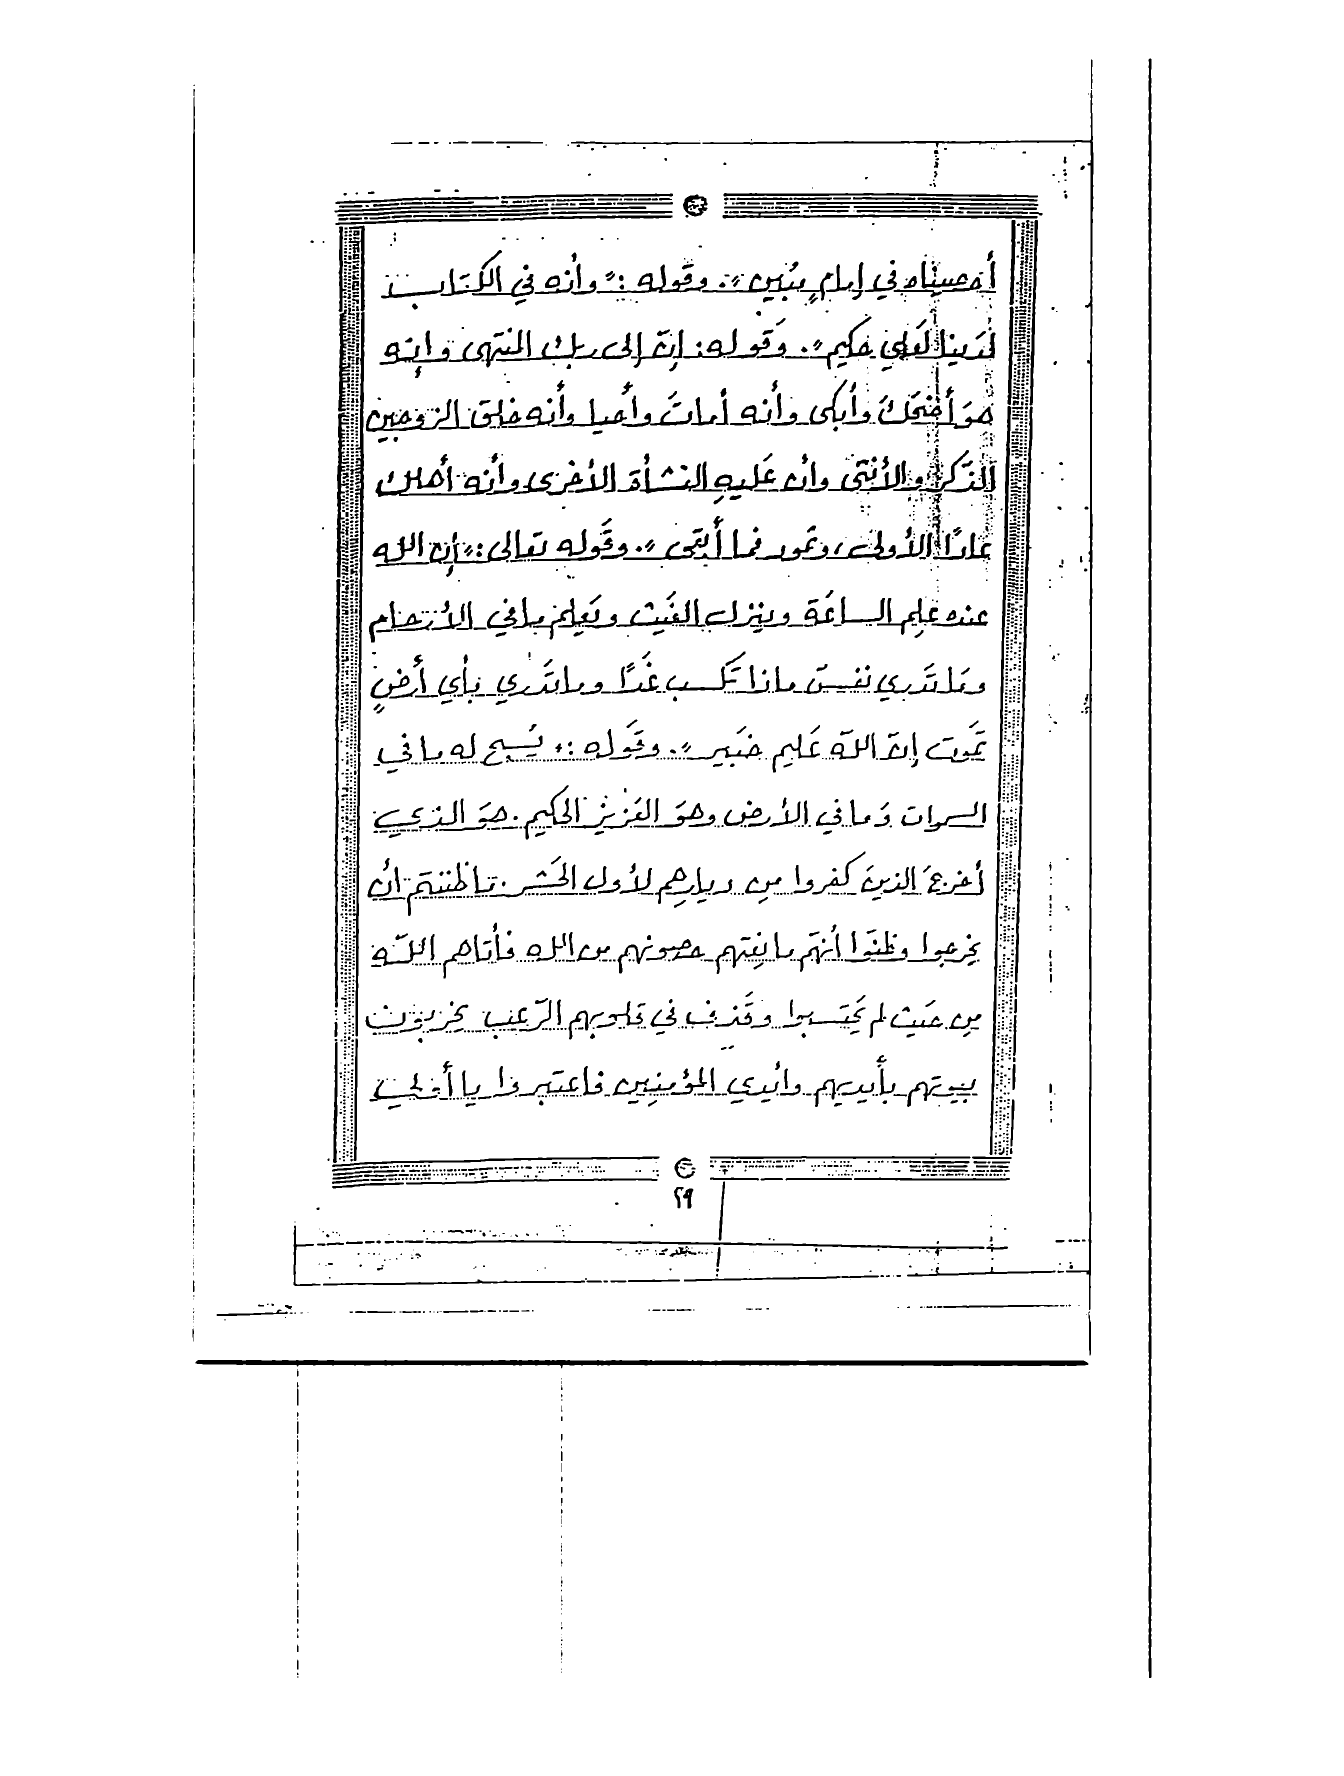 أحصيناه في إمام مبين». وقوله: «وأنه في الكتاب
لدينا لعلي حكيم». وقوله: إنّ إلى ربك المنتهى وإنه
هو أضحك وأبكى وأنه أمات وأحيا وأنه خلق الزوجين
الذكر والأنثى وأن عليه النشأة الأخرى وأنه أهلك
عادًا الأولى، وثمود فما أبقى». وقوله تعالى: «إن الله
عنده علم الساعة وينزل الغيث ويعلم ما في الأرحام
وما تدري نفس ماذا تكسب غدًا وما تدري بأي أرضٍ
تموت إنّ الله عليم خبير». وقوله: «يسبح له ما في
السموات وما في الأرض وهو العزيز الحكيم. هو الذي
أخرج الذين كفروا من ديارهم لأول الحشر. ما ظننتم أن
يخرجوا وظنوا أنهم مانعتهم حصونهم من الله فأتاهم الله
من حيث لم يحتسبوا وقذف في قلوبهم الرّعب يخربون
بيوتهم بأيديهم وأيدي المؤمنين فاعتبروا يا أولي
٢٩